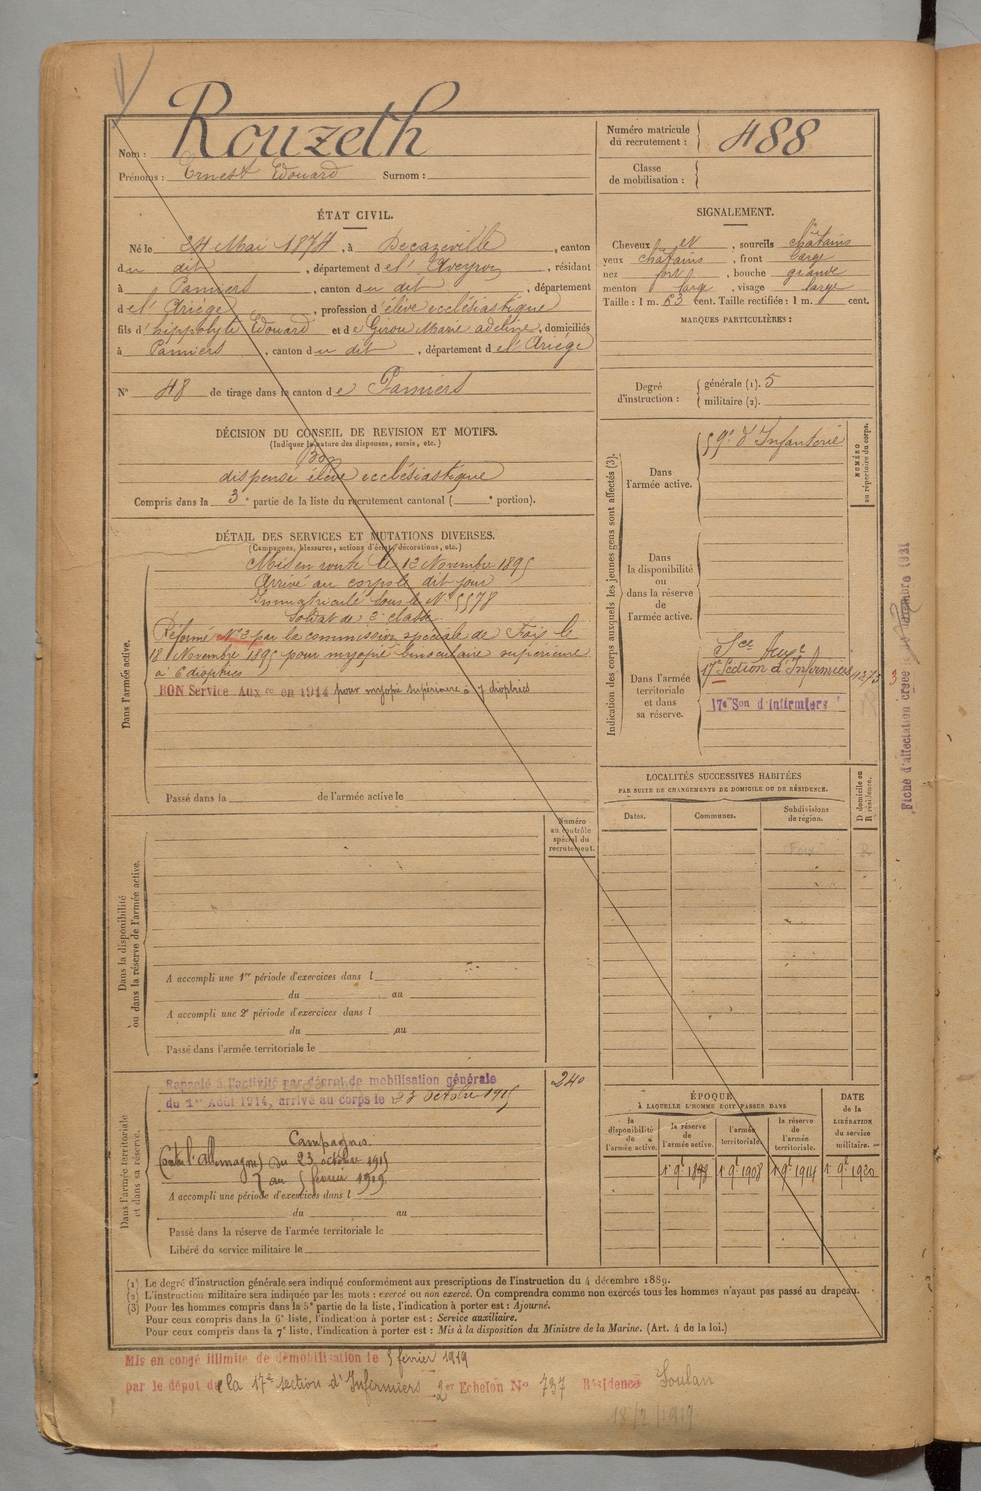 Nom : Rouzeth
Prénoms : Ernest Edouard Surnom :
Numéro matricule du recrutement : 488
Classe de mobilisation :
ÉTAT CIVIL.
Né le 24 Mai 1874, à Decazeville, canton
du dit, département de l'Aveyron, résidant
à Pamiers, canton du dit, département
de l'Ariège, profession d'élève ecclésiastique
fils d'hippolyte Edouard et de Girou Marie adeline, domiciliés
à Pamiers, canton du dit, département de l'Ariège
N° 48 de tirage dans le canton de Pamiers
SIGNALEMENT.
Cheveux et, sourcils châtains
yeux châtains, front large
nez fort, bouche grande
menton large, visage large
Taille : 1 m. 63 cent. Taille rectifiée : 1 m. cent.
MARQUES PARTICULIÈRES :
Degré d'instruction : générale (1). 5
militaire (2).
DÉCISION DU CONSEIL DE REVISION ET MOTIFS.
(Indiquer la nature des dispenses, sursis, etc.)
Bon
dispensé élève ecclésiastique
Compris dans la 3e partie de la liste du recrutement cantonal ( e portion).
DÉTAIL DES SERVICES ET MUTATIONS DIVERSES.
(Campagnes, blessures, actions d'éclat, décorations, etc.)
Dans l'armée active.
Mis en route le 12 Novembre 1895
Arrivé au corps le dit jour
Immatriculé sous le N° 5578
Soldat de 2e classe
Réformé N° 2 par la commission spéciale de Foix le
18 Novembre 1895 pour myopie binoculaire supérieure
à 6 dioptries
BON Service Aux re en 1914 pour myopie supérieure à 7 dioptries
Passé dans la de l'armée active le
Indication des corps auxquels les jeunes gens sont affectés (3).
NUMÉRO au répertoire du corps.
Dans l'armée active.
59e d'Infanterie
Dans la disponibilité ou dans la réserve de l'armée active.
Dans l'armée territoriale et dans sa réserve.
Sce Auxre
17e Section d'Infirmiers
17e Son d'Infirmiers
Fiche d'affectation créée
LOCALITÉS SUCCESSIVES HABITÉES
PAR SUITE DE CHANGEMENTS DE DOMICILE OU DE RÉSIDENCE.
Dates. Communes. Subdivisions de région. D domicile ou R résidence.
Foix R
Numéro au contrôle spécial du recrutement.
240
Dans la disponibilité ou dans la réserve de l'armée active.
A accompli une 1re période d'exercices dans l
du au
A accompli une 2e période d'exercices dans l
du au
Passé dans l'armée territoriale le
Dans l'armée territoriale et dans sa réserve.
Rappelé à l'activité par décret de mobilisation générale
du 1er Août 1914, arrivé au corps le 23 octobre 1915
Campagnes.
Contre l'allemagne du 23 octobre 1915
au 5 février 1919.
A accompli une période d'exercices dans l
du au
Passé dans la réserve de l'armée territoriale le
Libéré du service militaire le
ÉPOQUE
À LAQUELLE L'HOMME DOIT PASSER DANS
la disponibilité de l'armée active.
la réserve de l'armée active.
l'armée territoriale.
la réserve de l'armée territoriale.
DATE de la LIBÉRATION du service militaire.
1er 9bre 1898 1er 9bre 1908 1er 9bre 1914 1er 9bre 1920
(1) Le degré d'instruction générale sera indiqué conformément aux prescriptions de l'instruction du 4 décembre 1889.
(2) L'instruction militaire sera indiquée par les mots : exercé ou non exercé. On comprendra comme non exercés tous les hommes n'ayant pas passé au drapeau.
(3) Pour les hommes compris dans la 5e partie de la liste, l'indication à porter est : Ajourné.
Pour ceux compris dans la 6e liste, l'indication à porter est : Service auxiliaire.
Pour ceux compris dans la 7e liste, l'indication à porter est : Mis à la disposition du Ministre de la Marine. (Art. 4 de la loi.)
Mis en congé illimité de démobilisation le 5 février 1919
par le dépôt de la 17e section d'Infirmiers 2er Echelon N° 737 Résidence Soulan
18/2/1919